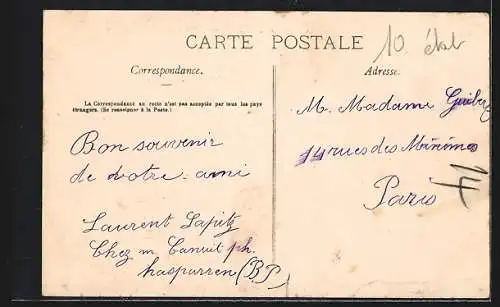 CARTE POSTALE
10 état
Correspondance.
Adresse.
La Correspondance au recto n'est pas acceptée par tous les pays
étrangers. (Se renseigner à la Poste.)
Bon souvenir
de votre ami
Laurent
Chez m. ph.
hasparren (B P)
M. Madame
14 rues des Minimes
14
Paris